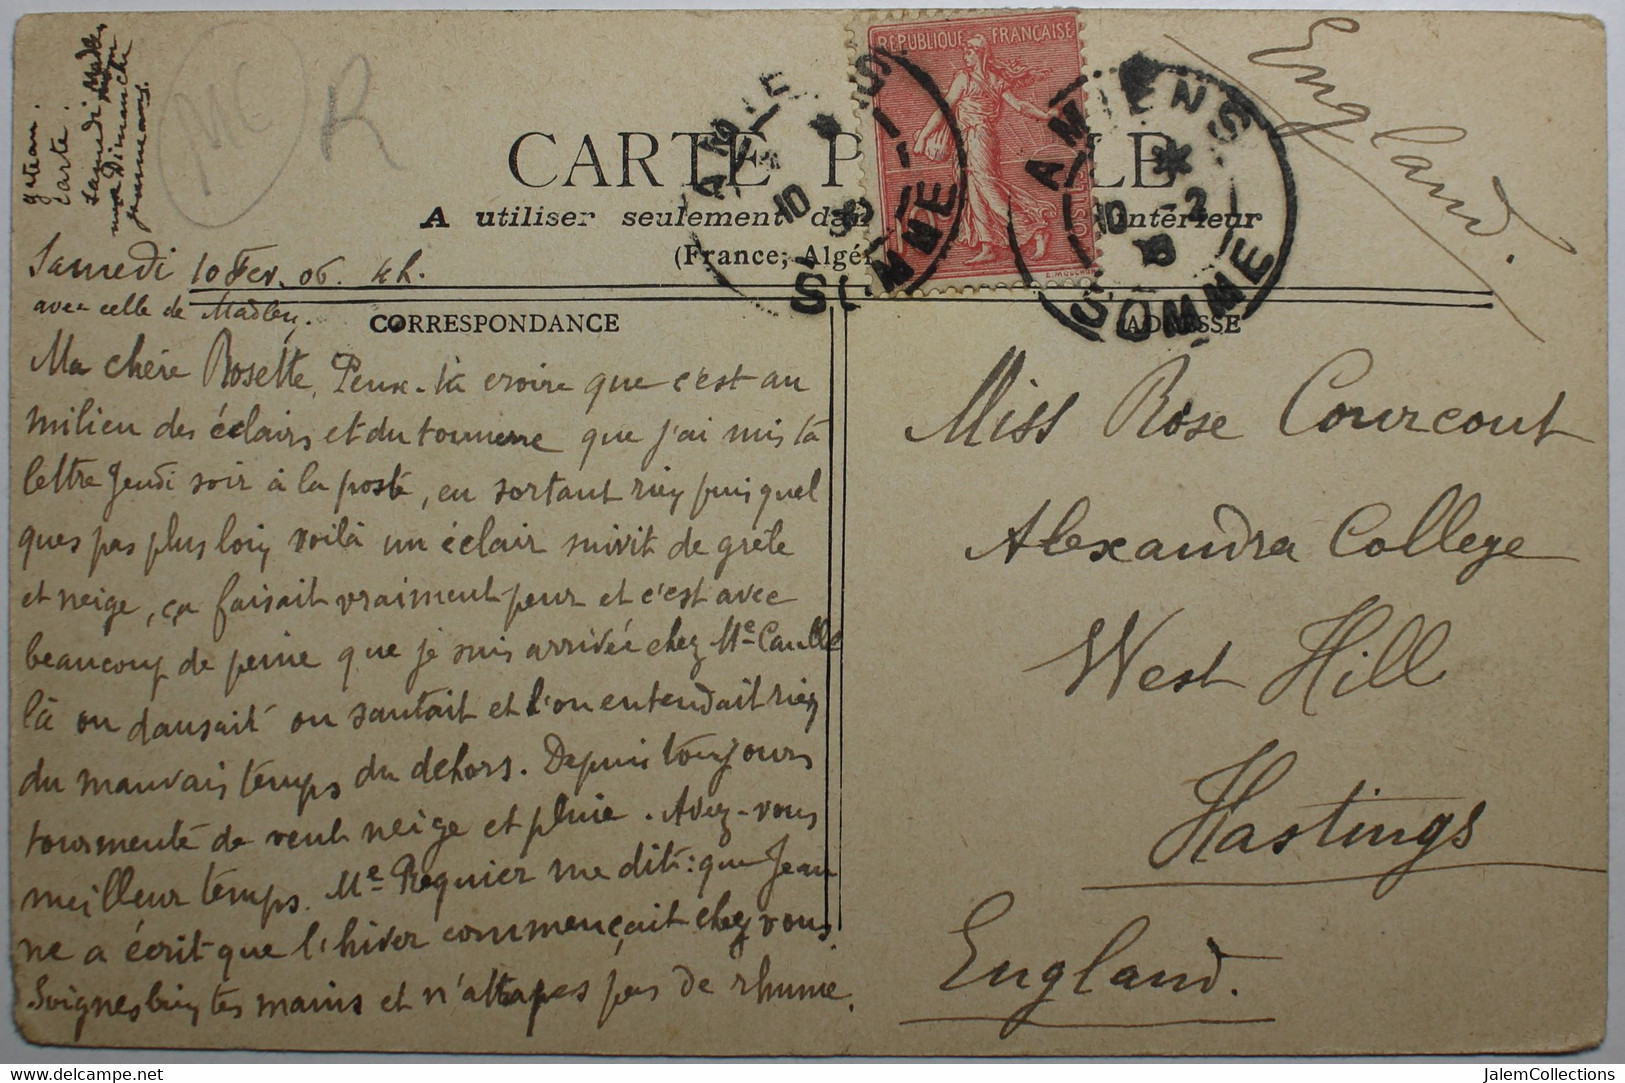 England.
gateau.
Carte.
Samedi Madley
Dimanche
R
RÉPUBLIQUE FRANÇAISE
AMIENS
10 -2
SOMME
AMIENS
10 -2
06
SOMME
CARTE P LE
A utiliser seulement dan intérieur
(France, Algér
Samedi 10 Fev. 06. 4h.
avec celle de Madley.
CORRESPONDANCE
Ma chère Rosette, Peux-tu croire que c'est au
milieu des éclairs et du tonnerre que j'ai mis ta
lettre Jeudi soir à la poste, en sortant rien puis quel
ques pas plus loin voilà un éclair suivit de grêle
et neige, ça faisait vraiment peur et c'est avec
beaucoup de peine que je suis arrivée chez Me Caulle
là on dansait on sautait et l'on entendait rien
du mauvais temps du dehors. Depuis toujours
tourmente de vent neige et pluie. Avez-vous
meilleur temps. Me Requier me dit: que Jean
ne a écrit que l'hiver commençait chez vous.
Soignes bien tes mains et n'attapes pas de rhume.
ADRESSE
Miss Rose Courcout
Alexandra College
West Hill
Hastings
England.
JalemCollections